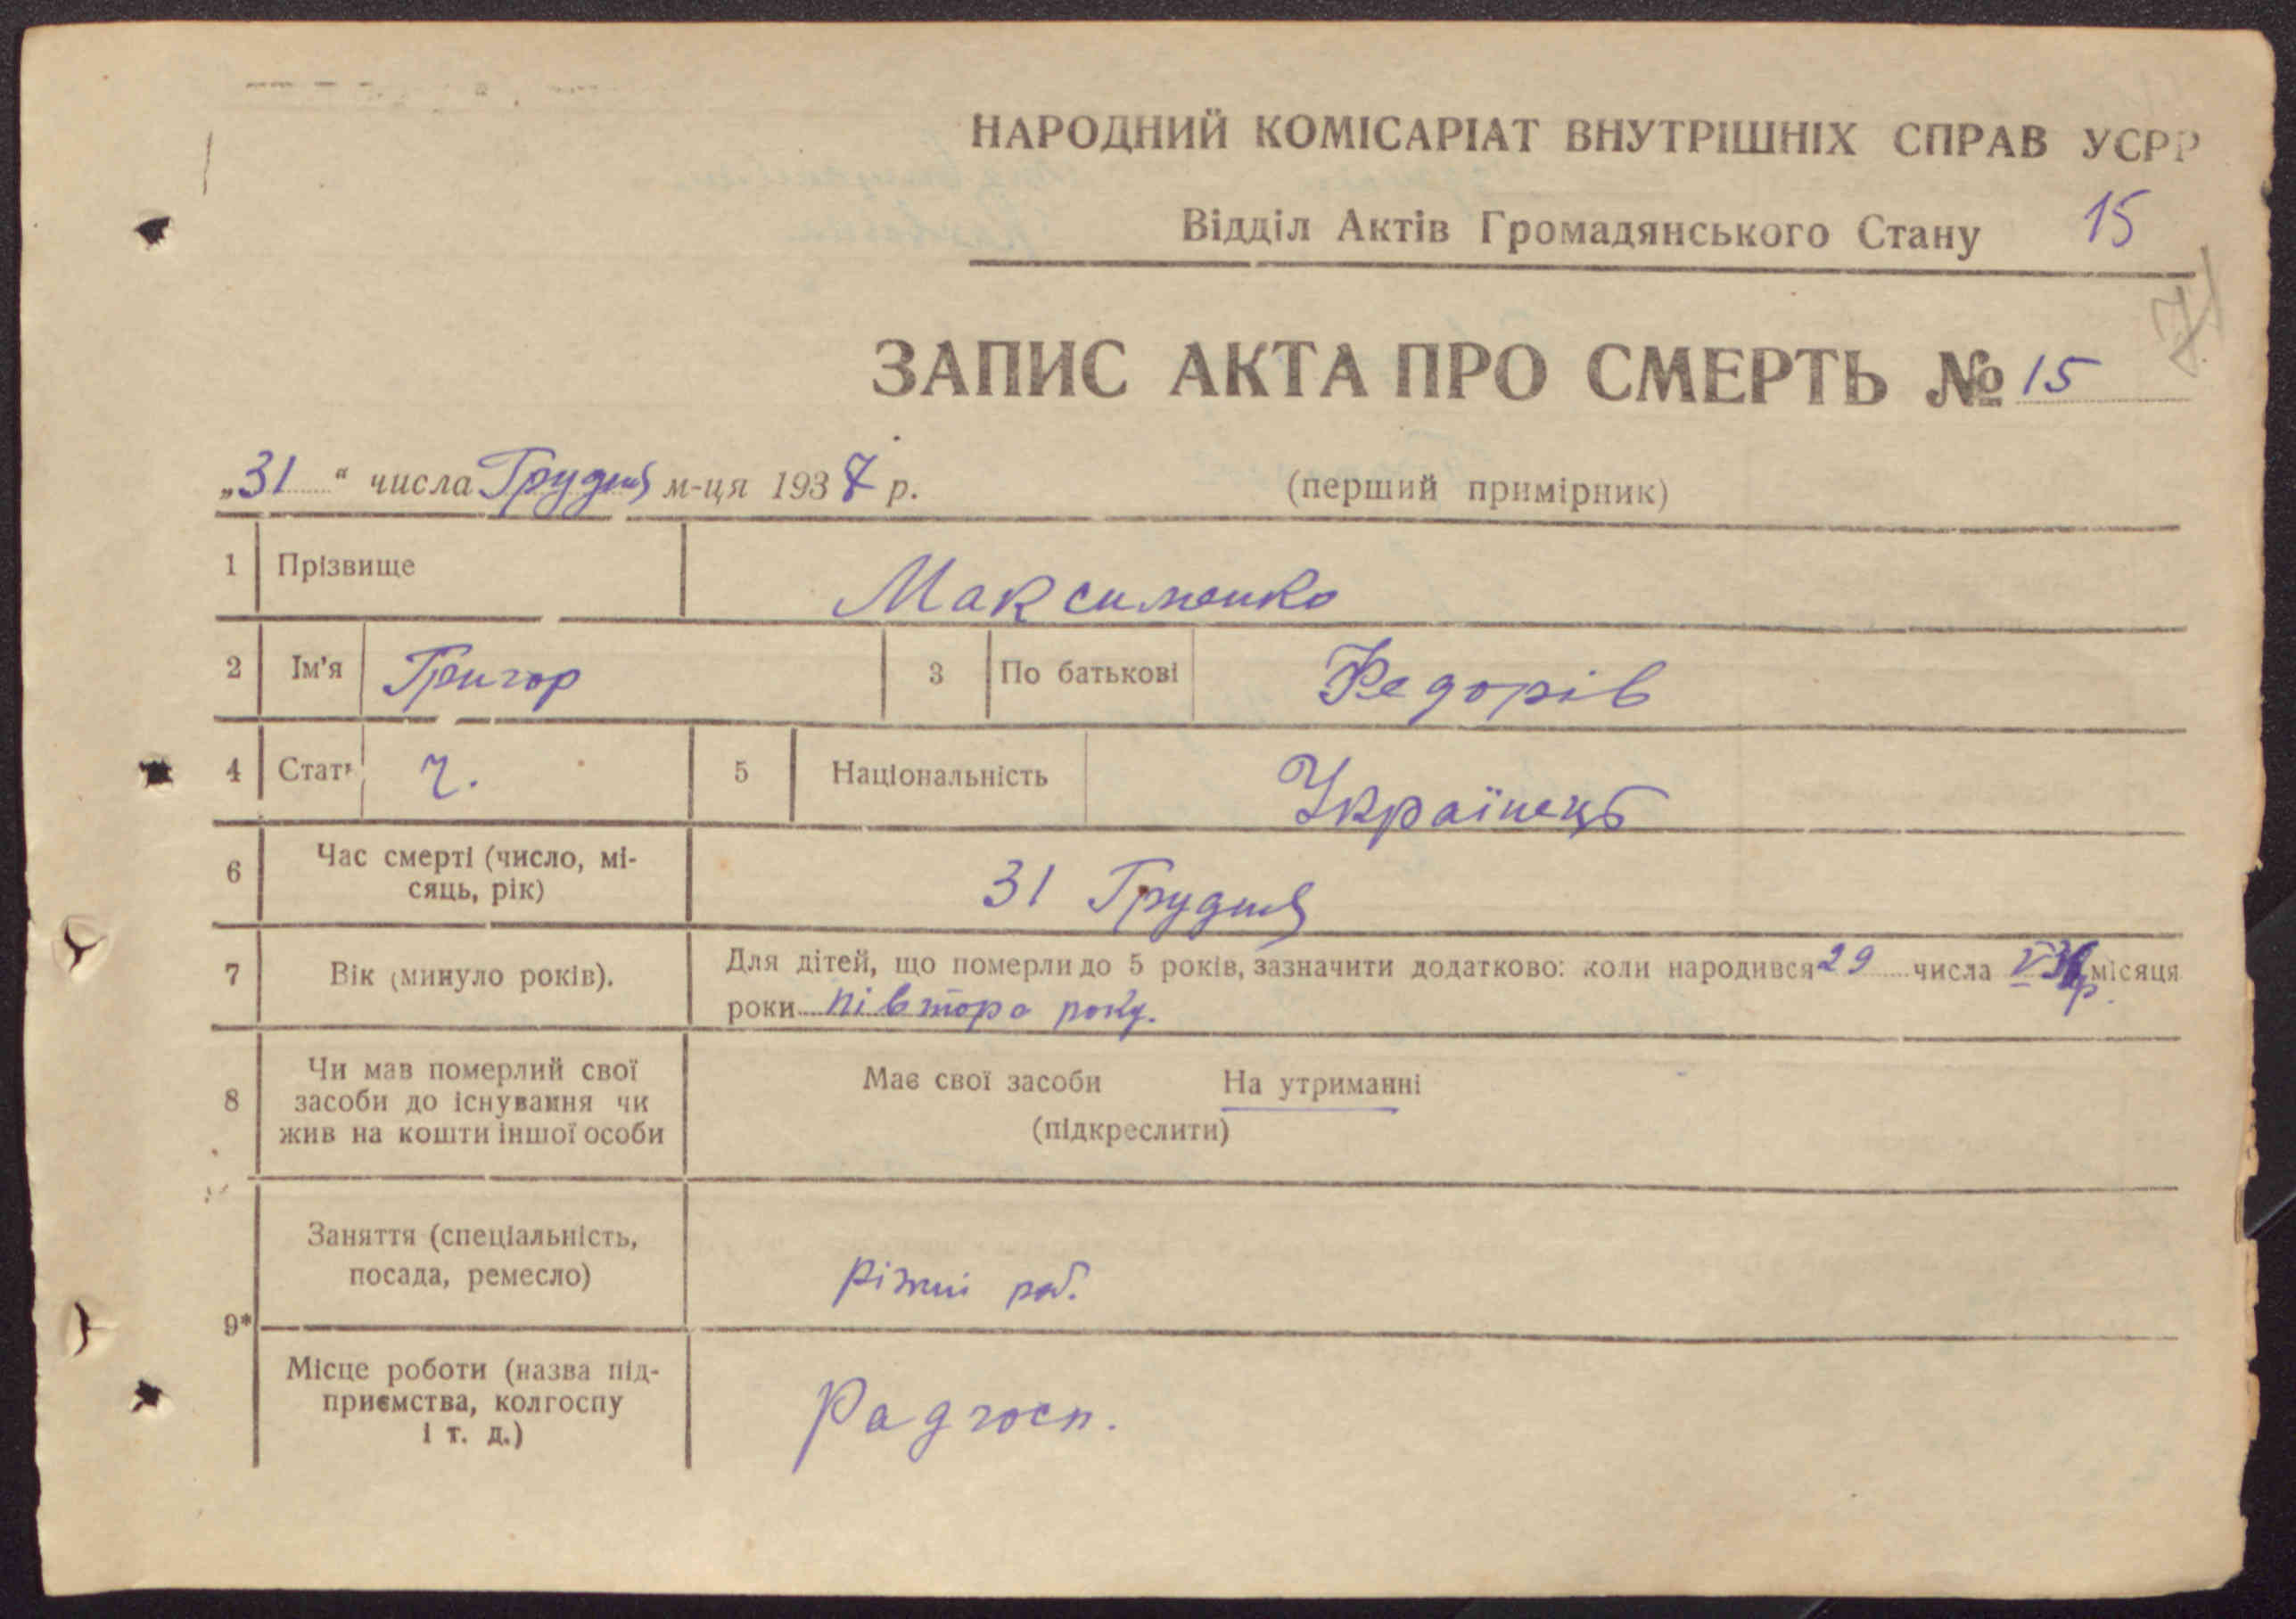 НАРОДНИЙ КОМІСАРІАТ ВНУТРІШНІХ СПРАВ УСРР
Відділ Актів Громадянського Стану 15
ЗАПИС АКТА ПРО СМЕРТЬ № 15
„31“ числа Грудня м-ця 1937 р. (перший примірник)
1 Прізвище Максименко
2 Ім'я Григор 3 По батькові Федорів
4 Стать ч. 5 Національність Українець
6 Час смерті (число, мі-
сяць, рік) 31 Грудня
7 Вік (минуло років). Для дітей, що померли до 5 років, зазначити додатково: коли народився 29 числа V 36р. місяця
роки півтора року.
8 Чи мав померлий свої
засоби до існування чи
жив на кошти іншої особи
Має свої засоби На утриманні
(підкреслити)
Заняття (спеціальність,
посада, ремесло) ріжні роб.
9*
Місце роботи (назва під-
приємства, колгоспу
і т. д.) Радгосп.